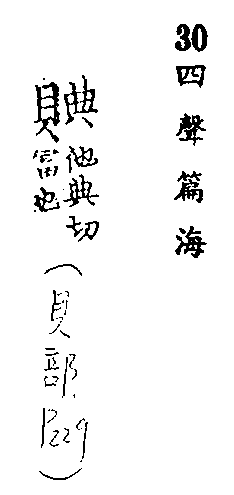 30四聲篇海
賟他典切富也(貝部.P229)